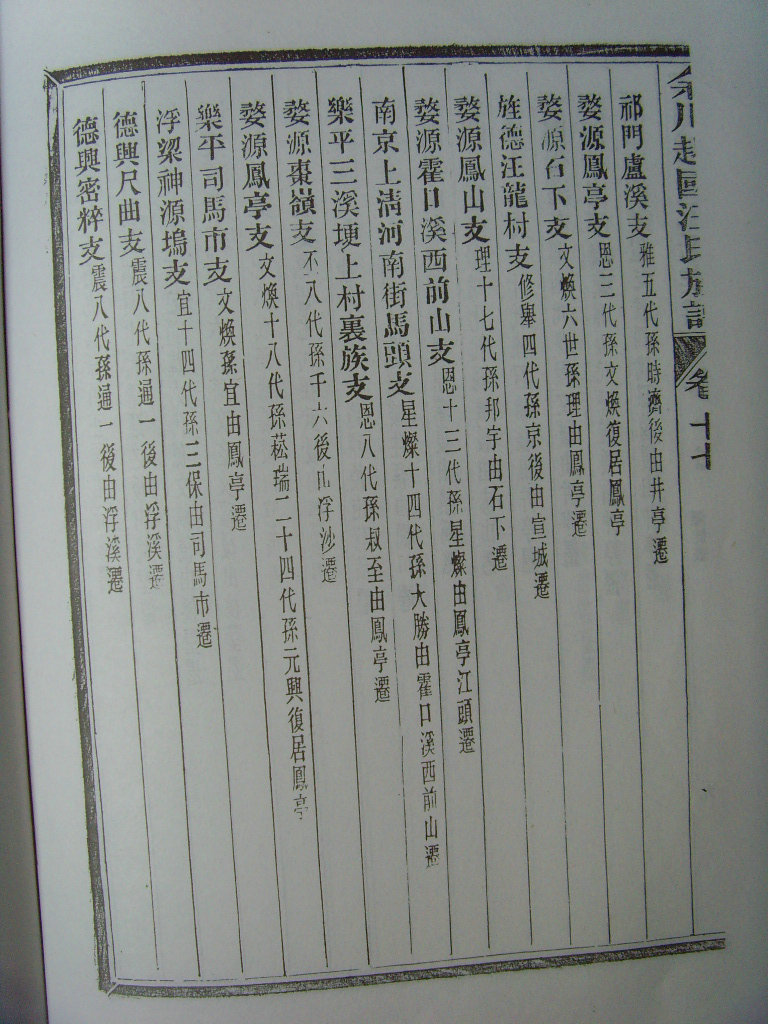 余川越國汪氏族譜 卷十七
祁門盧溪支 雅五代孫時濟後由井亭遷
婺源鳳亭支 恩三代孫文煥復居鳳亭
婺源石下支 文煥六世孫理由鳳亭遷
旌德汪龍村支 修舉四代孫京後由宣城遷
婺源鳳山支 理十七代孫邦宇由石下遷
婺源霍口溪西前山支 恩十三代孫星燦由鳳亭江頭遷
南京上清河南街馬頭支 星燦十四代孫大勝由霍口溪西前山遷
樂平三溪埂上村裏族支 恩八代孫叔至由鳳亭遷
婺源棗嶺支 八代孫千六後由浮沙遷
婺源鳳亭支 文煥十八代孫菘瑞二十四代孫元興復居鳳亭
樂平司馬市支 文煥孫宜由鳳亭遷
浮梁神源塢支 宜十四代孫三保由司馬市遷
德興尺曲支 震八代孫通一後由浮溪遷
德興密粹支 震八代孫通一後由浮溪遷